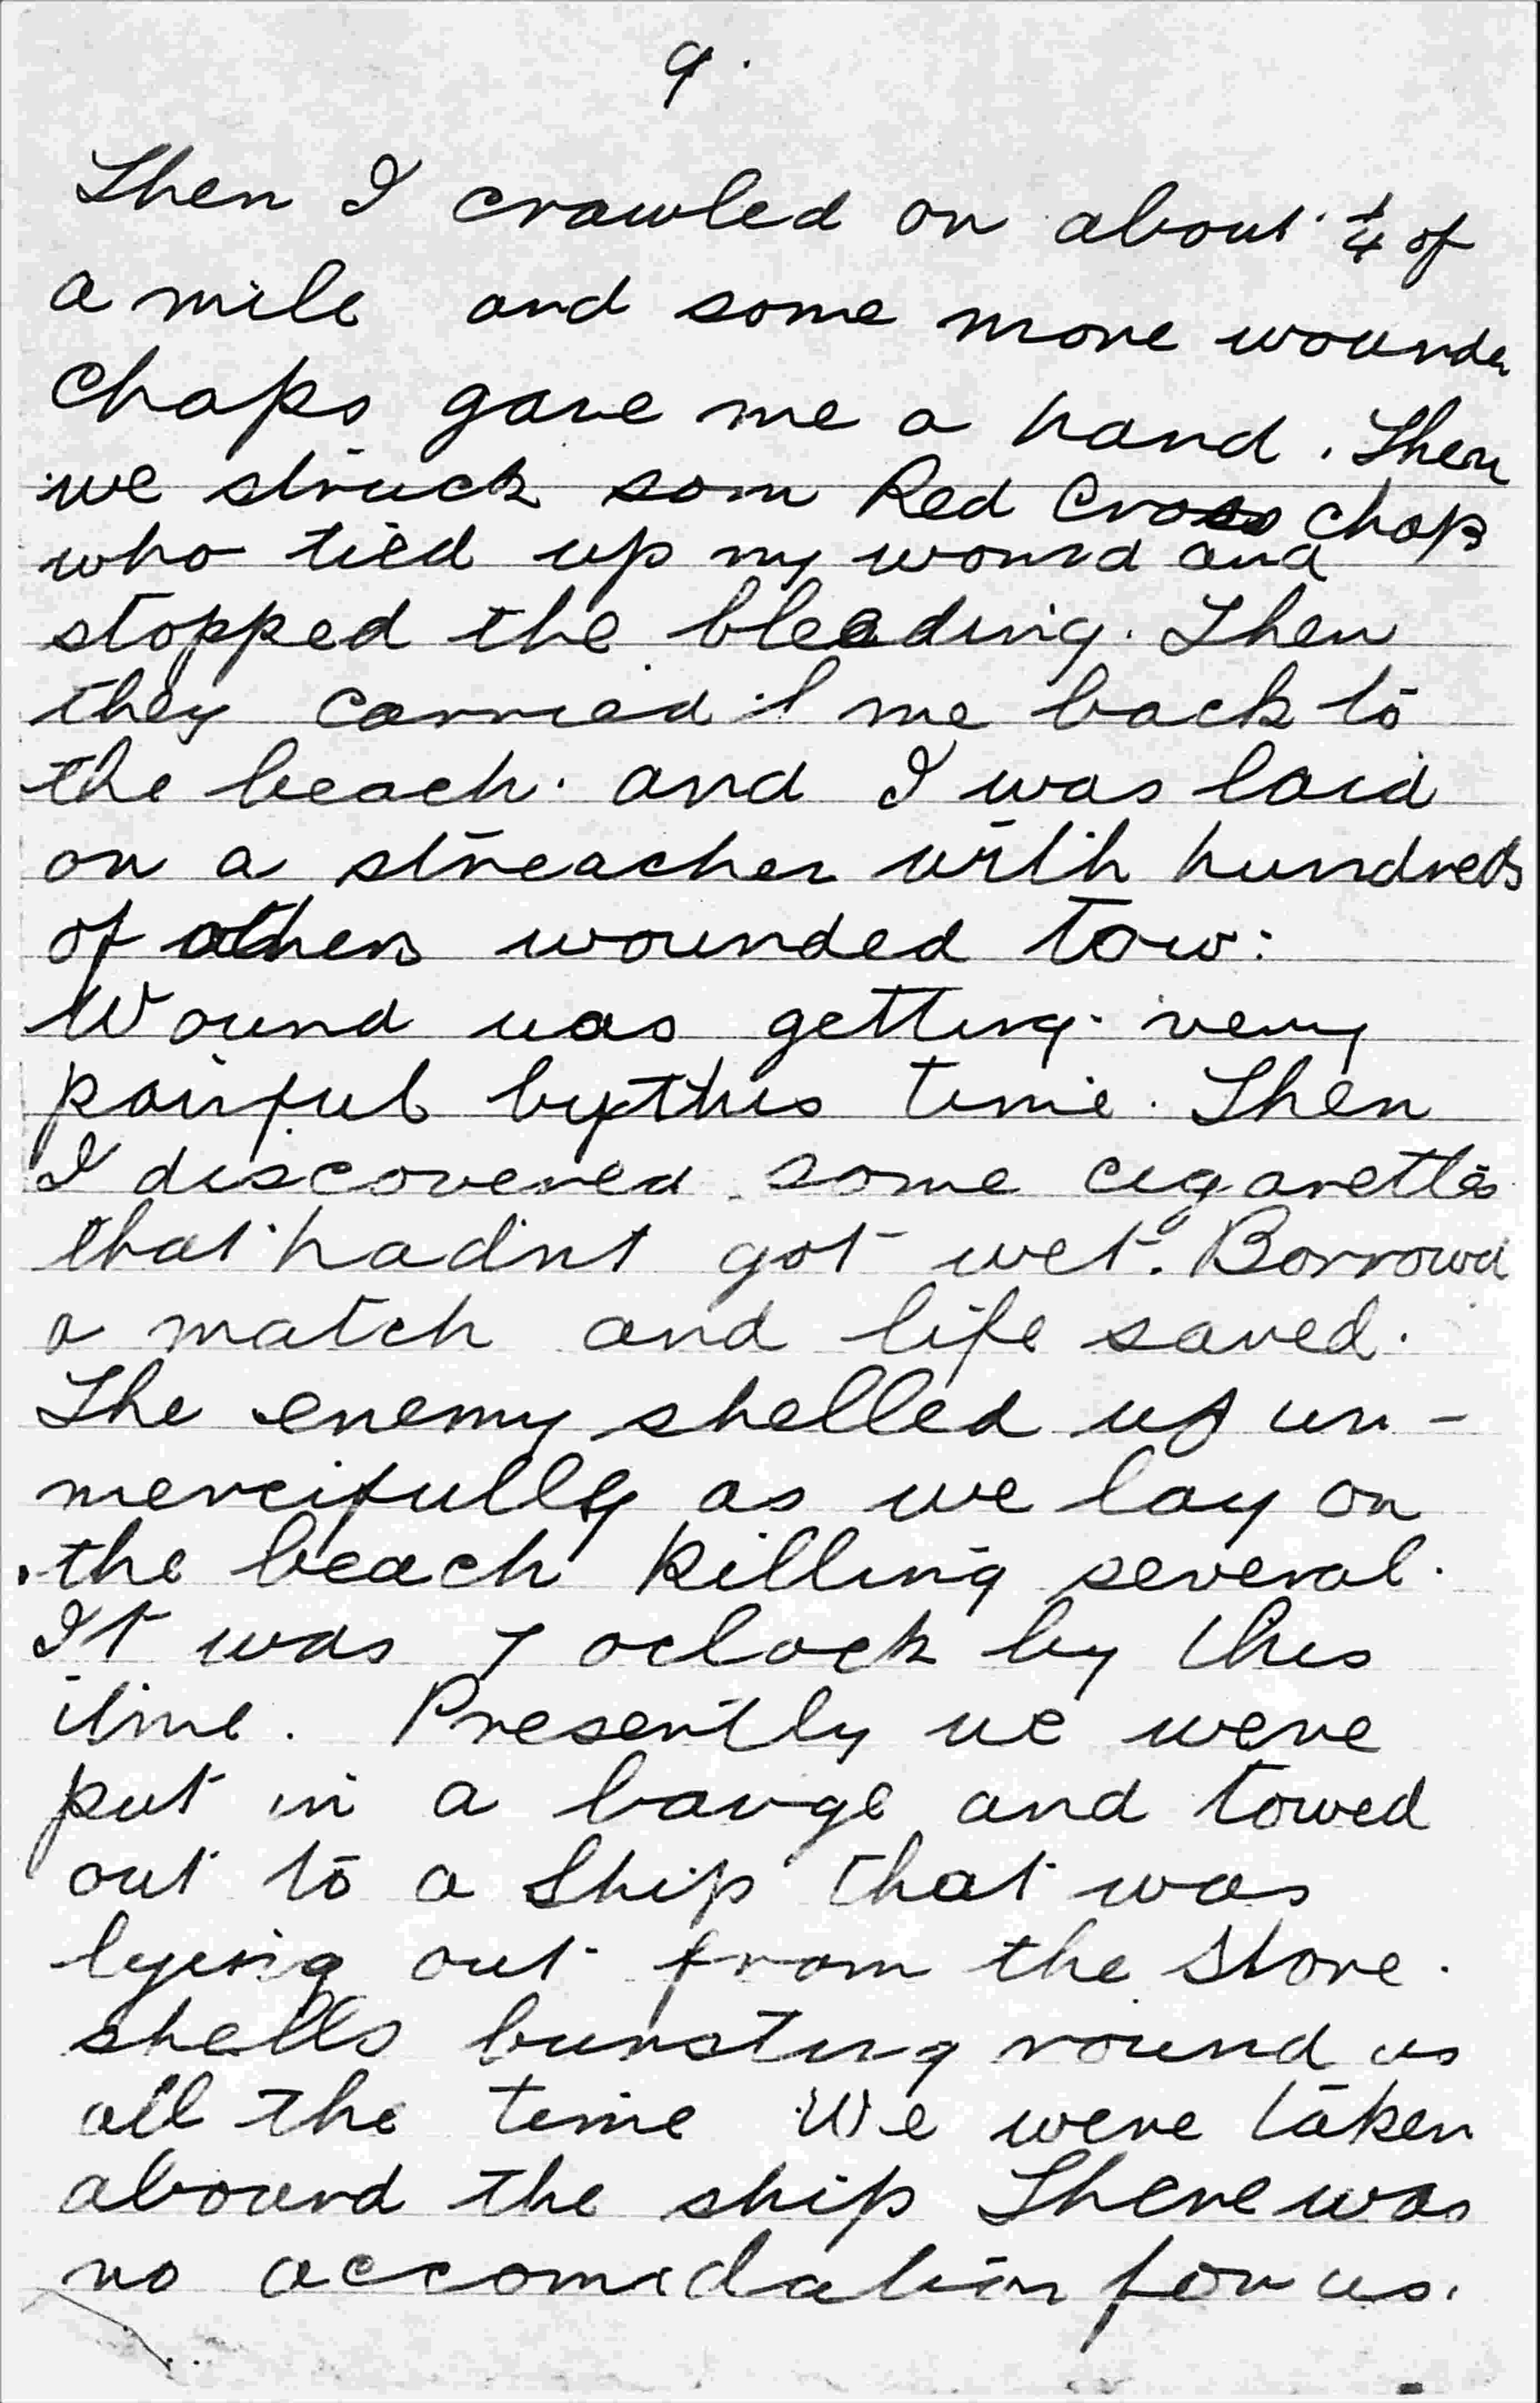 9.
Then I crawled on about 1/4 of
a mile and some more wounde
chaps gave me a hand. Then
we struck som Red Cross chaps
who tied up my wound and
stopped the bleeding. Then
they carried me back to
the beach. and I was laid
on a streacher with hundreds
of others wounded tow:
Wound was getting very
painful by this time. Then
I discovered some cigarettes
that hadnt got wet. Borrowd
a match and life saved.
The enemy shelled us un-
mercifully as we lay on
the beach killing several.
It was 7 oclock by this
time. Presently we were
put in a barge and towed
out to a ship that was
lying out from the shore.
shells bursting round us
all the time We were taken
aboard the ship There was
no accomidation for us.